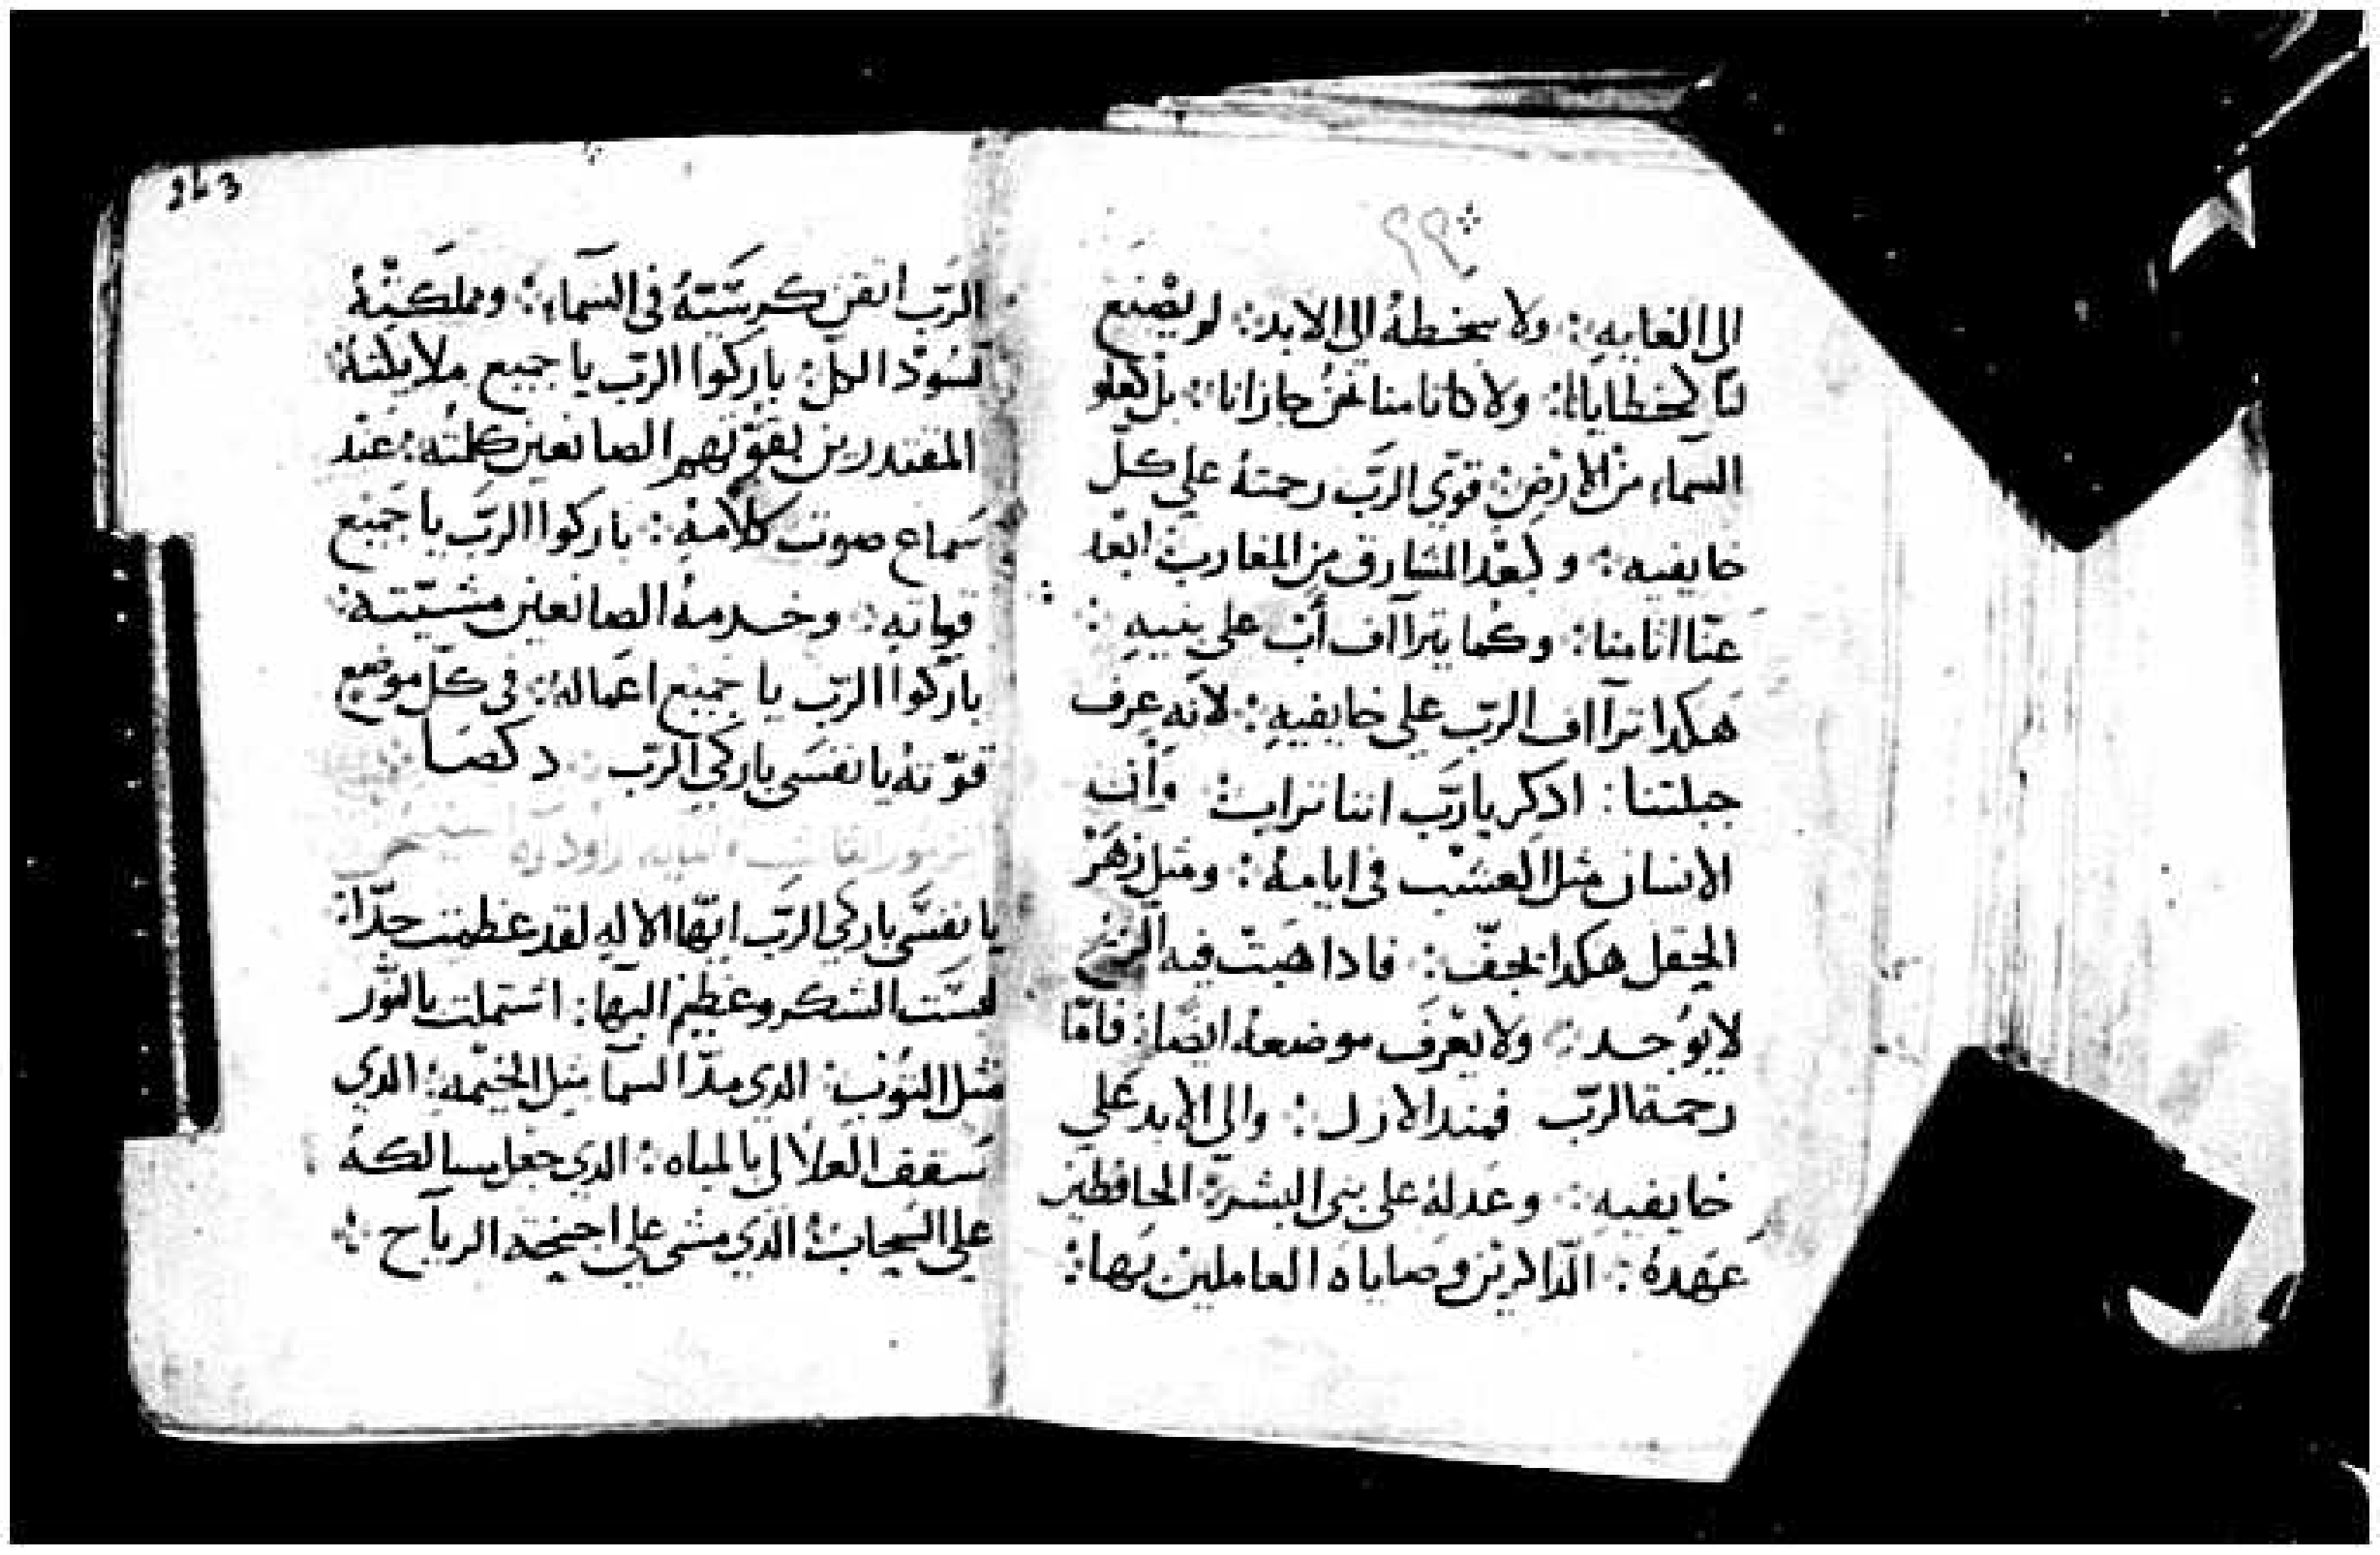 الى الغايه: ولا سخطهُ الى الابد: لم يصْنع
لنا كخطايانا: ولا كاثامنا نحنُ جازانا: بل كعلو
السماء منْ الارْضِ: قوّى الربّ رحمتهُ على كلّ
خايفيه: وكبعْد المشارق من المغارب ابْعد
عنّا اثامنا: وكما يتراآف أبٌ على بنيهِ:
هَكدا تراآف الربّ على خايفيهِ: لانّه عرف
جبلتنا: ادكر يا ربّ اننا ترابٌ وأن
الانسان مثل العشب فى ايامهُ: ومثل زهرْ
الحقل هكدا يجفّ: فادا هبّتْ فيه الريح
لا يوُجد: ولا يعْرفَ موضعهُ ايضًا: فامّا
رحمة الربّ فمند الازل: والى الابد على
خايفيه: وعَدلهُ على بنى البشريّه الحافظين
عَهدهُ: الدّاكرين وصاياه العاملين بها:
263
الربّ اتقن كرسيّهُ فى السماء: ومملكتهُ
تسُودْ الكل: باركوا الربّ يا جميع ملايكتهُ
المقتدرين بقوّتهم الصانعين كلمتهُ: عنْد
سَماع صوت كلامهِ: باركوا الربّ يا جَميع
قواتهِ: وخدمهُ الصانعين مشيّتهُ:
باركوا الربّ يا جميع اعمالهُ: فى كلّ موضع
قوّتهُ يا نفسى باركى الربّ: دكصا
يا نفسى باركى الربّ ايّها الالهِ لقد عظمت جدّا:
لبسْت الشكر وعظيم البها: اشتملت بالنّور
مثل الثوب: الدى مدّ السما مثل الخيمه: الدي
سَقفف العلالى بالمياه: الدي جعل مسالكهُ
على السحاب: الدي مشى على اجنحة الرياح: